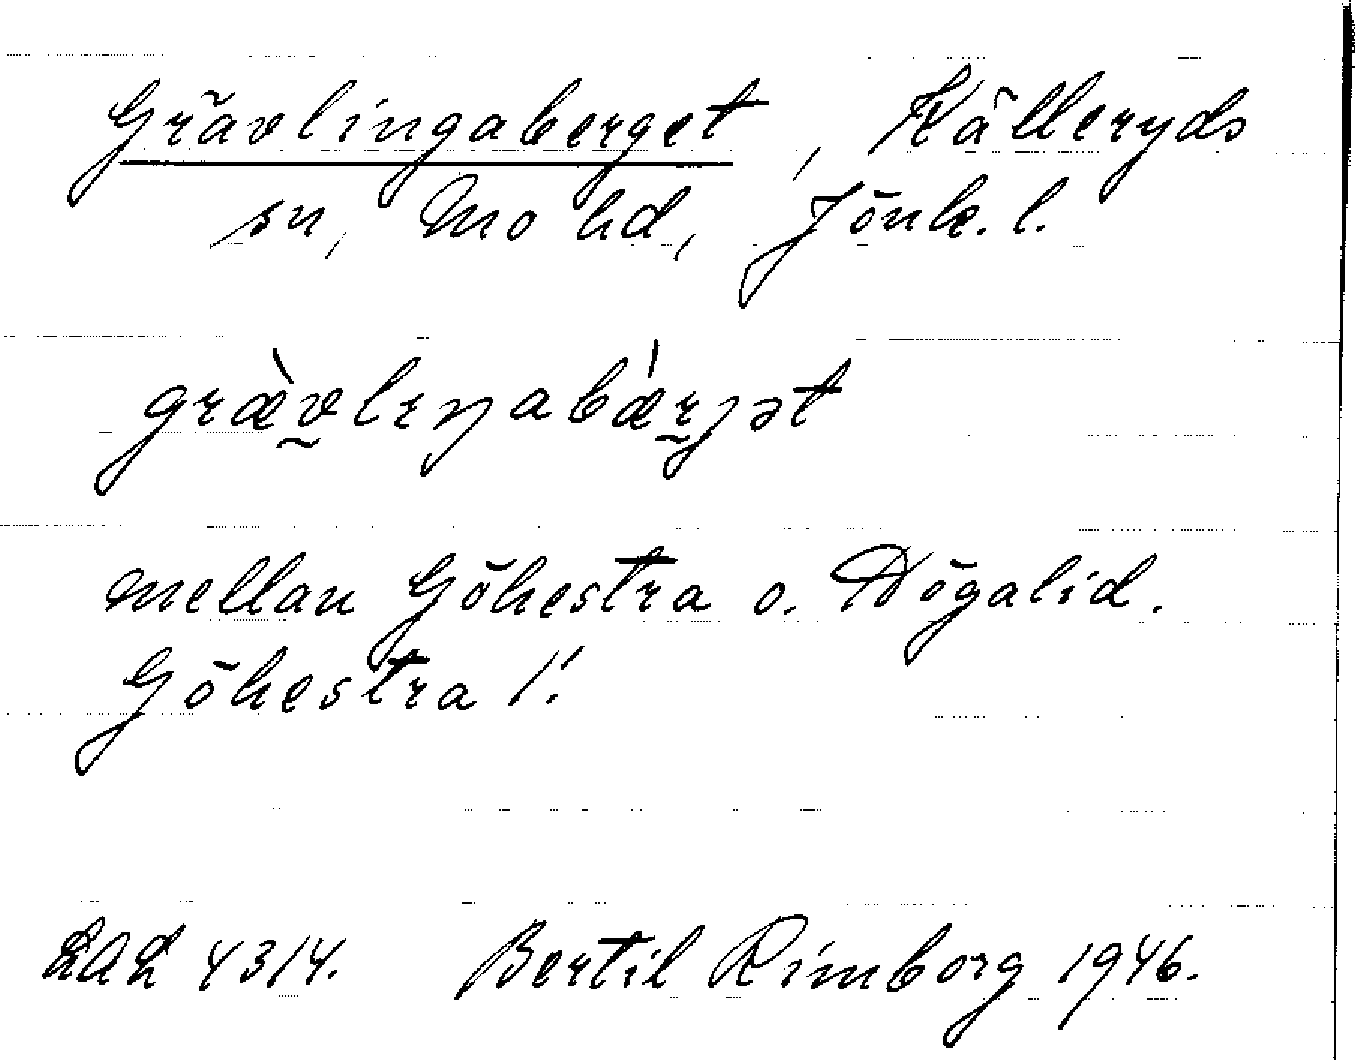 Grävlingaberget, Källeryds
sn, Mo hd, Jönk. l.
græ̀vlıŋabǽrjət
mellan Göhestra o. Högalid.
Göhestra 1:1
LAL 4314. Bertil Rimborg 1946.